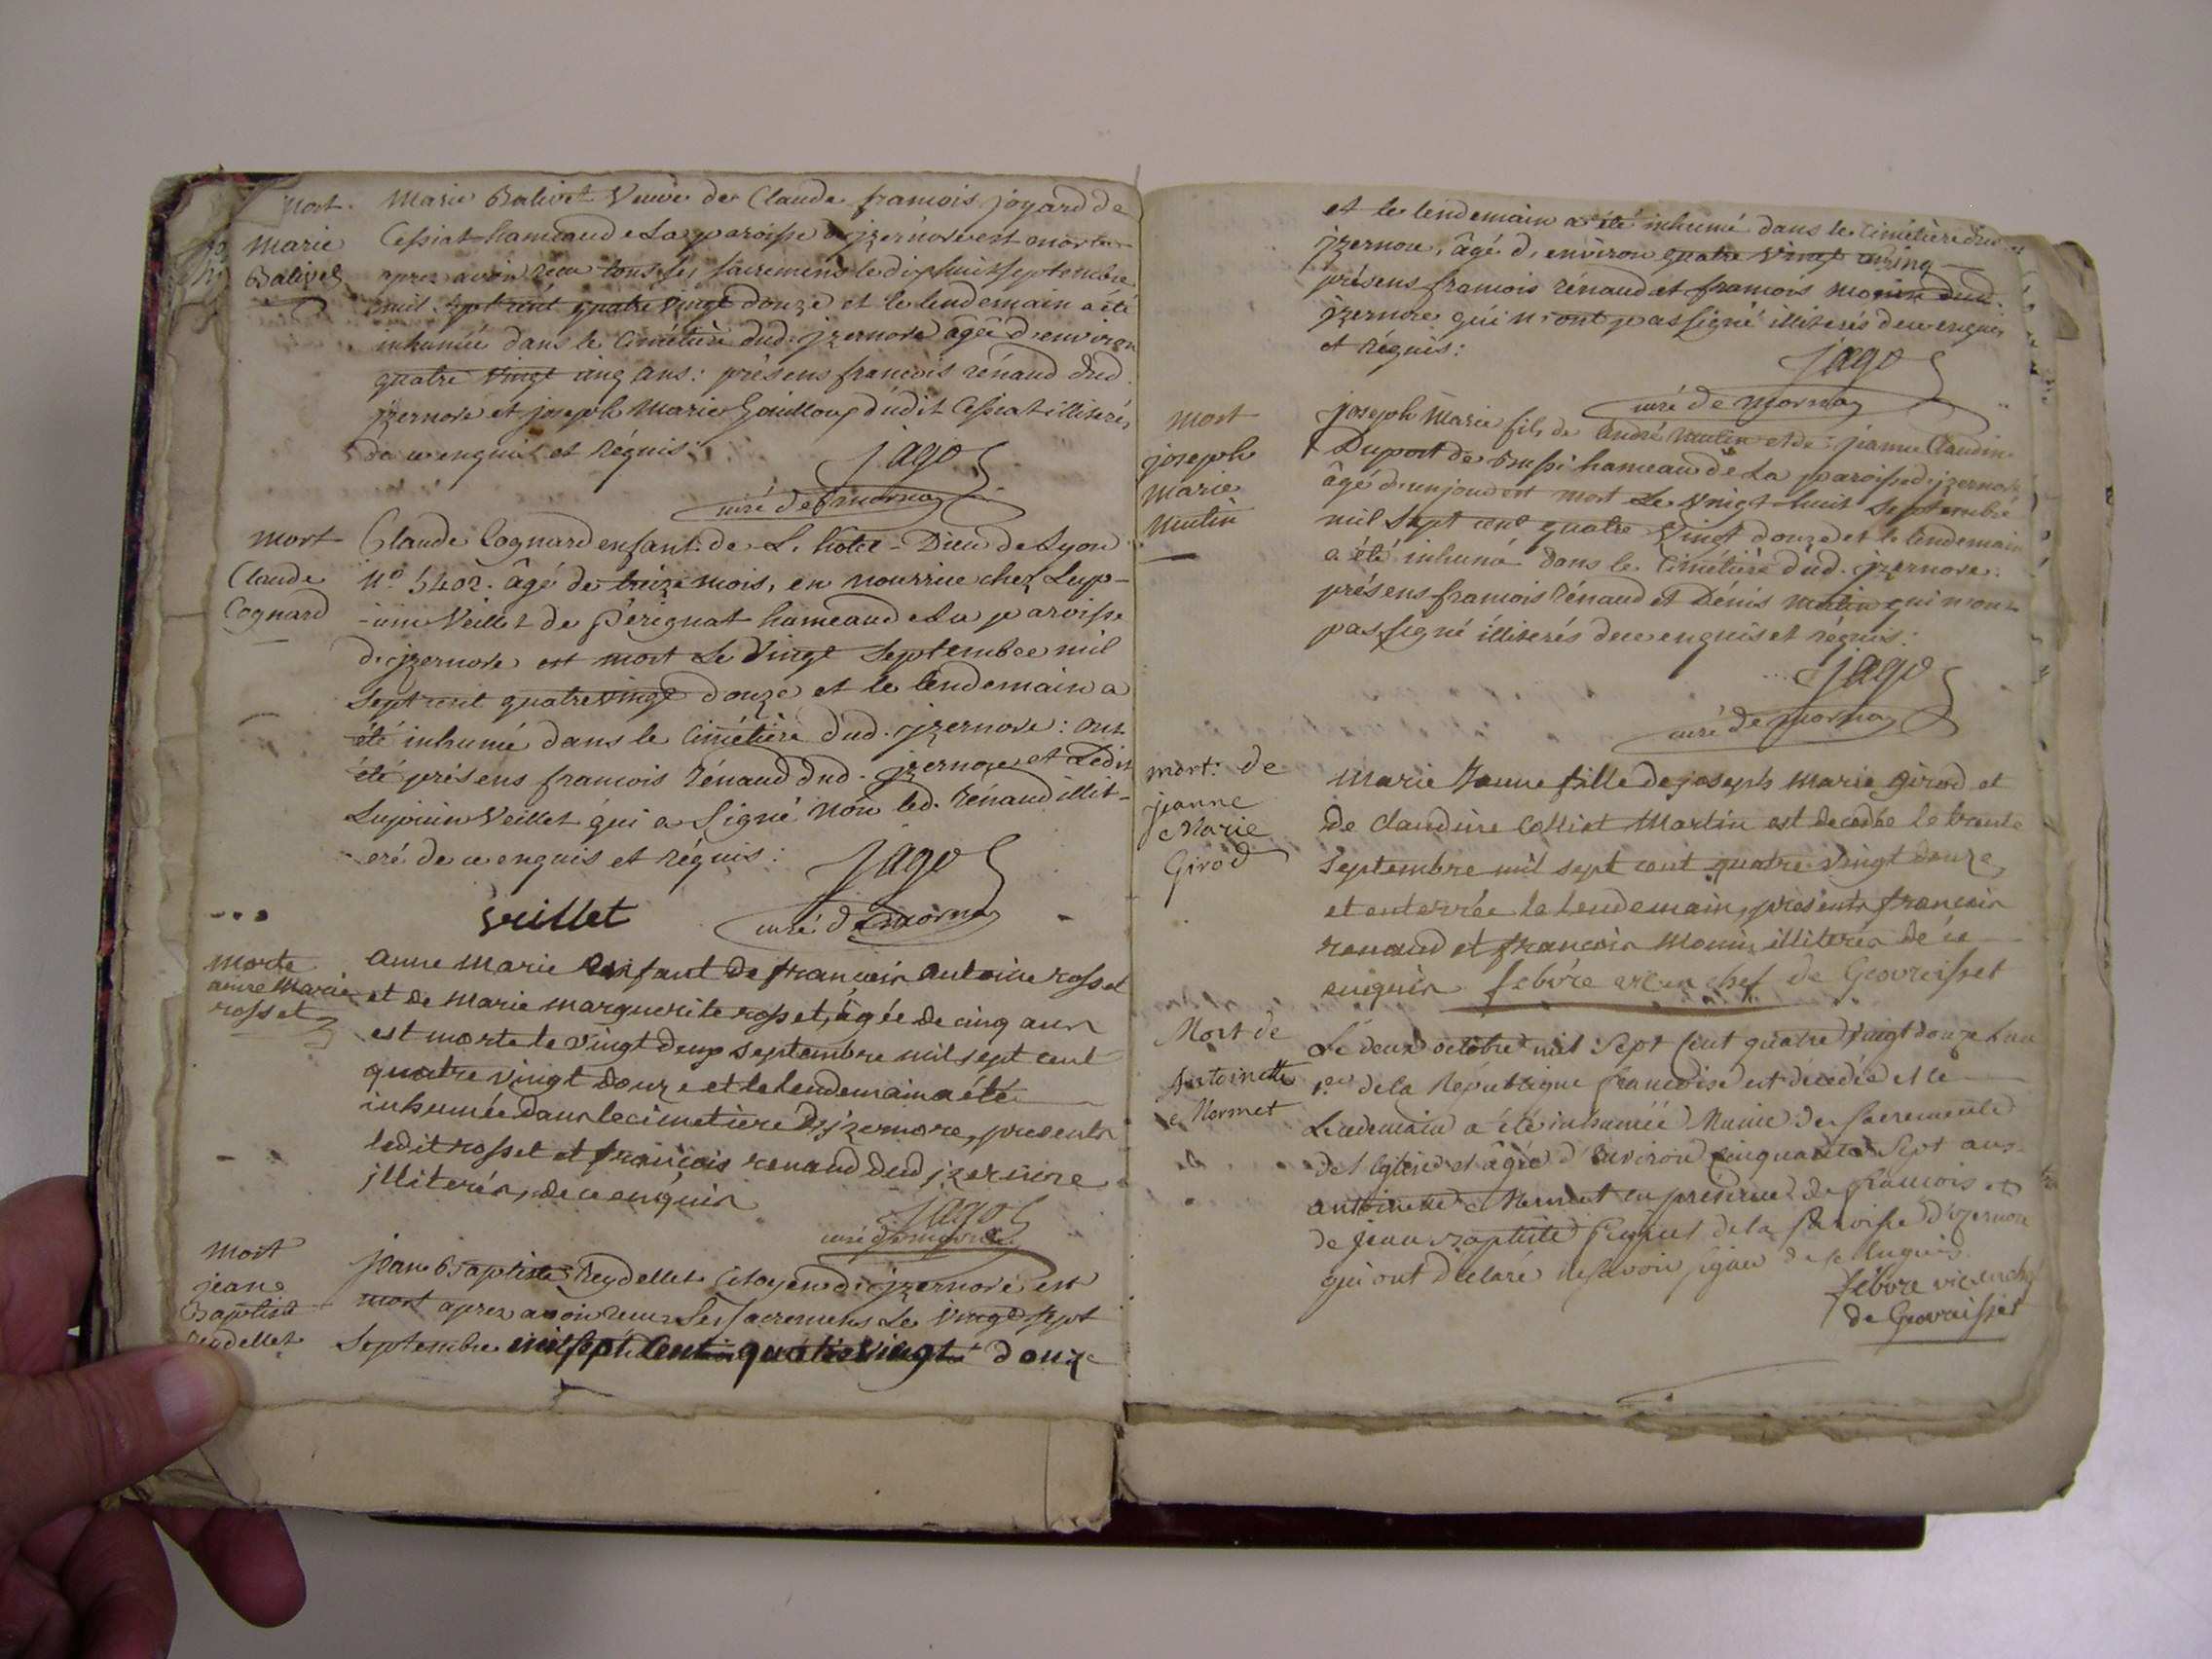 mort.
Marie
Balivet
Marie Balivet Veuve de Claude francois joyard de
Cessiat hameau de La paroisse d'jzernore est morte
apres avoir recu tous les sacremens le dix huit septembre
mil sept cent quatre vingt douze et le lendemain a été
inhumée dans le Cimétière dud. jzernore âgée d'environ
quatre vingt cinq ans: présens francois rénaud dud.
jzernore et joseph Marie Gailloux dudit Cessiat illiterés
de ce enquis et réquis:
jago
curé de mornay
mort
Claude
Cognard
Claude Cognard enfant de L'hotel-Dieu de Lyon
N° 5402. âgé de treize mois, en nourrice chez Lup-
-icin Veillet de Pérignat hameau de La paroisse
d'jzernore est mort Le Vingt Septembre mil
sept cent quatre vingt douze et le lendemain a
été inhumé dans le Cimétière dud. jzernore: ont
été présens francois Rénaud dud. jzernore et Ledit
Lupicin Veillet qui a Signé Non led. Rénaud illit-
eré de ce enquis et réquis:
jago
Veillet
curé de mornay
morte
anne Marie
rosset
anne Marie enfant de francois antoine rosset
et de Marie marguerite rosset, âgée de cinq ans
est morte le vingt deux septembre mil sept cent
quatre vingt douze et le lendemain a été
inhumée dans le cimetiere d'jzernore, presents
ledit rosset et francois renaud dud jzernore
jlliterés, de ce enquis
jago
curé de mornay
mort
jean
Baptiste
reydellet
jean Baptiste Reydellet Citoyen d'jzernore est
mort apres avoir recu Les sacremens Le vingt sept
Septembre mil sept cent quatre vingt douze
et le lendemain a été inhumé dans le Cimétière dud.
jzernore, âgé d'environ quatre vingt cinq
présens francois rénaud et francois Monin dud.
jzernore qui n'ont pas signé illiterés de ce enquis
et réquis:
jago
curé de mornay
mort
joseph
Marie
Mutin
joseph Marie fils de André Mutin et de jeanne Claudine
Duport de Bussi hameau de La paroisse d'jzernore
âgé d'un jour est mort Le Vingt-huit Septembre
mil Sept cent quatre Vingt douze et le lendemain
a été inhumé dans le Cimétière dud. jzernore.
présens francois Rénaud et Dénis Mutin qui n'ont
pas signé illiterés de ce enquis et réquis:
jago
curé de mornay
mort: de
jeanne
Marie
Girod
Marie Janne fille de joseph Marie Girod et
de Claudine Colliet Martin est decedée le trente
Septembre mil sept cent quatre vingt douze
et enterrée le lendemain, présents francois
renaud et francois Monin illiterés de ce
enquis febvre vic en chef de Geovreisset
Mort de
Antoinette
Mermet
Le deux octobre mil Sept Cent quatre Vingt douze L'an
1er de la République francoise est décédée et le
Lendemain a été inhumée Munie des sacrements
de l'église et agée d'environ Cinquante Sept ans
antoinette Mermet en présence de francois et
de jean Baptiste de la paroisse d'izernore
qui ont declaré ne savoir signer de ce Enquis
febvre vic en chef
de Geovreisset